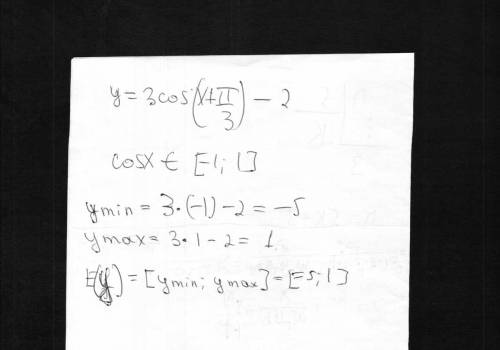 y = 3cos(x+π/3) − 2
cosx ∈ [-1; 1]
ymin = 3·(-1)-2 = -5
ymax = 3·1-2 = 1
E(y) = [ymin; ymax] = [-5; 1]